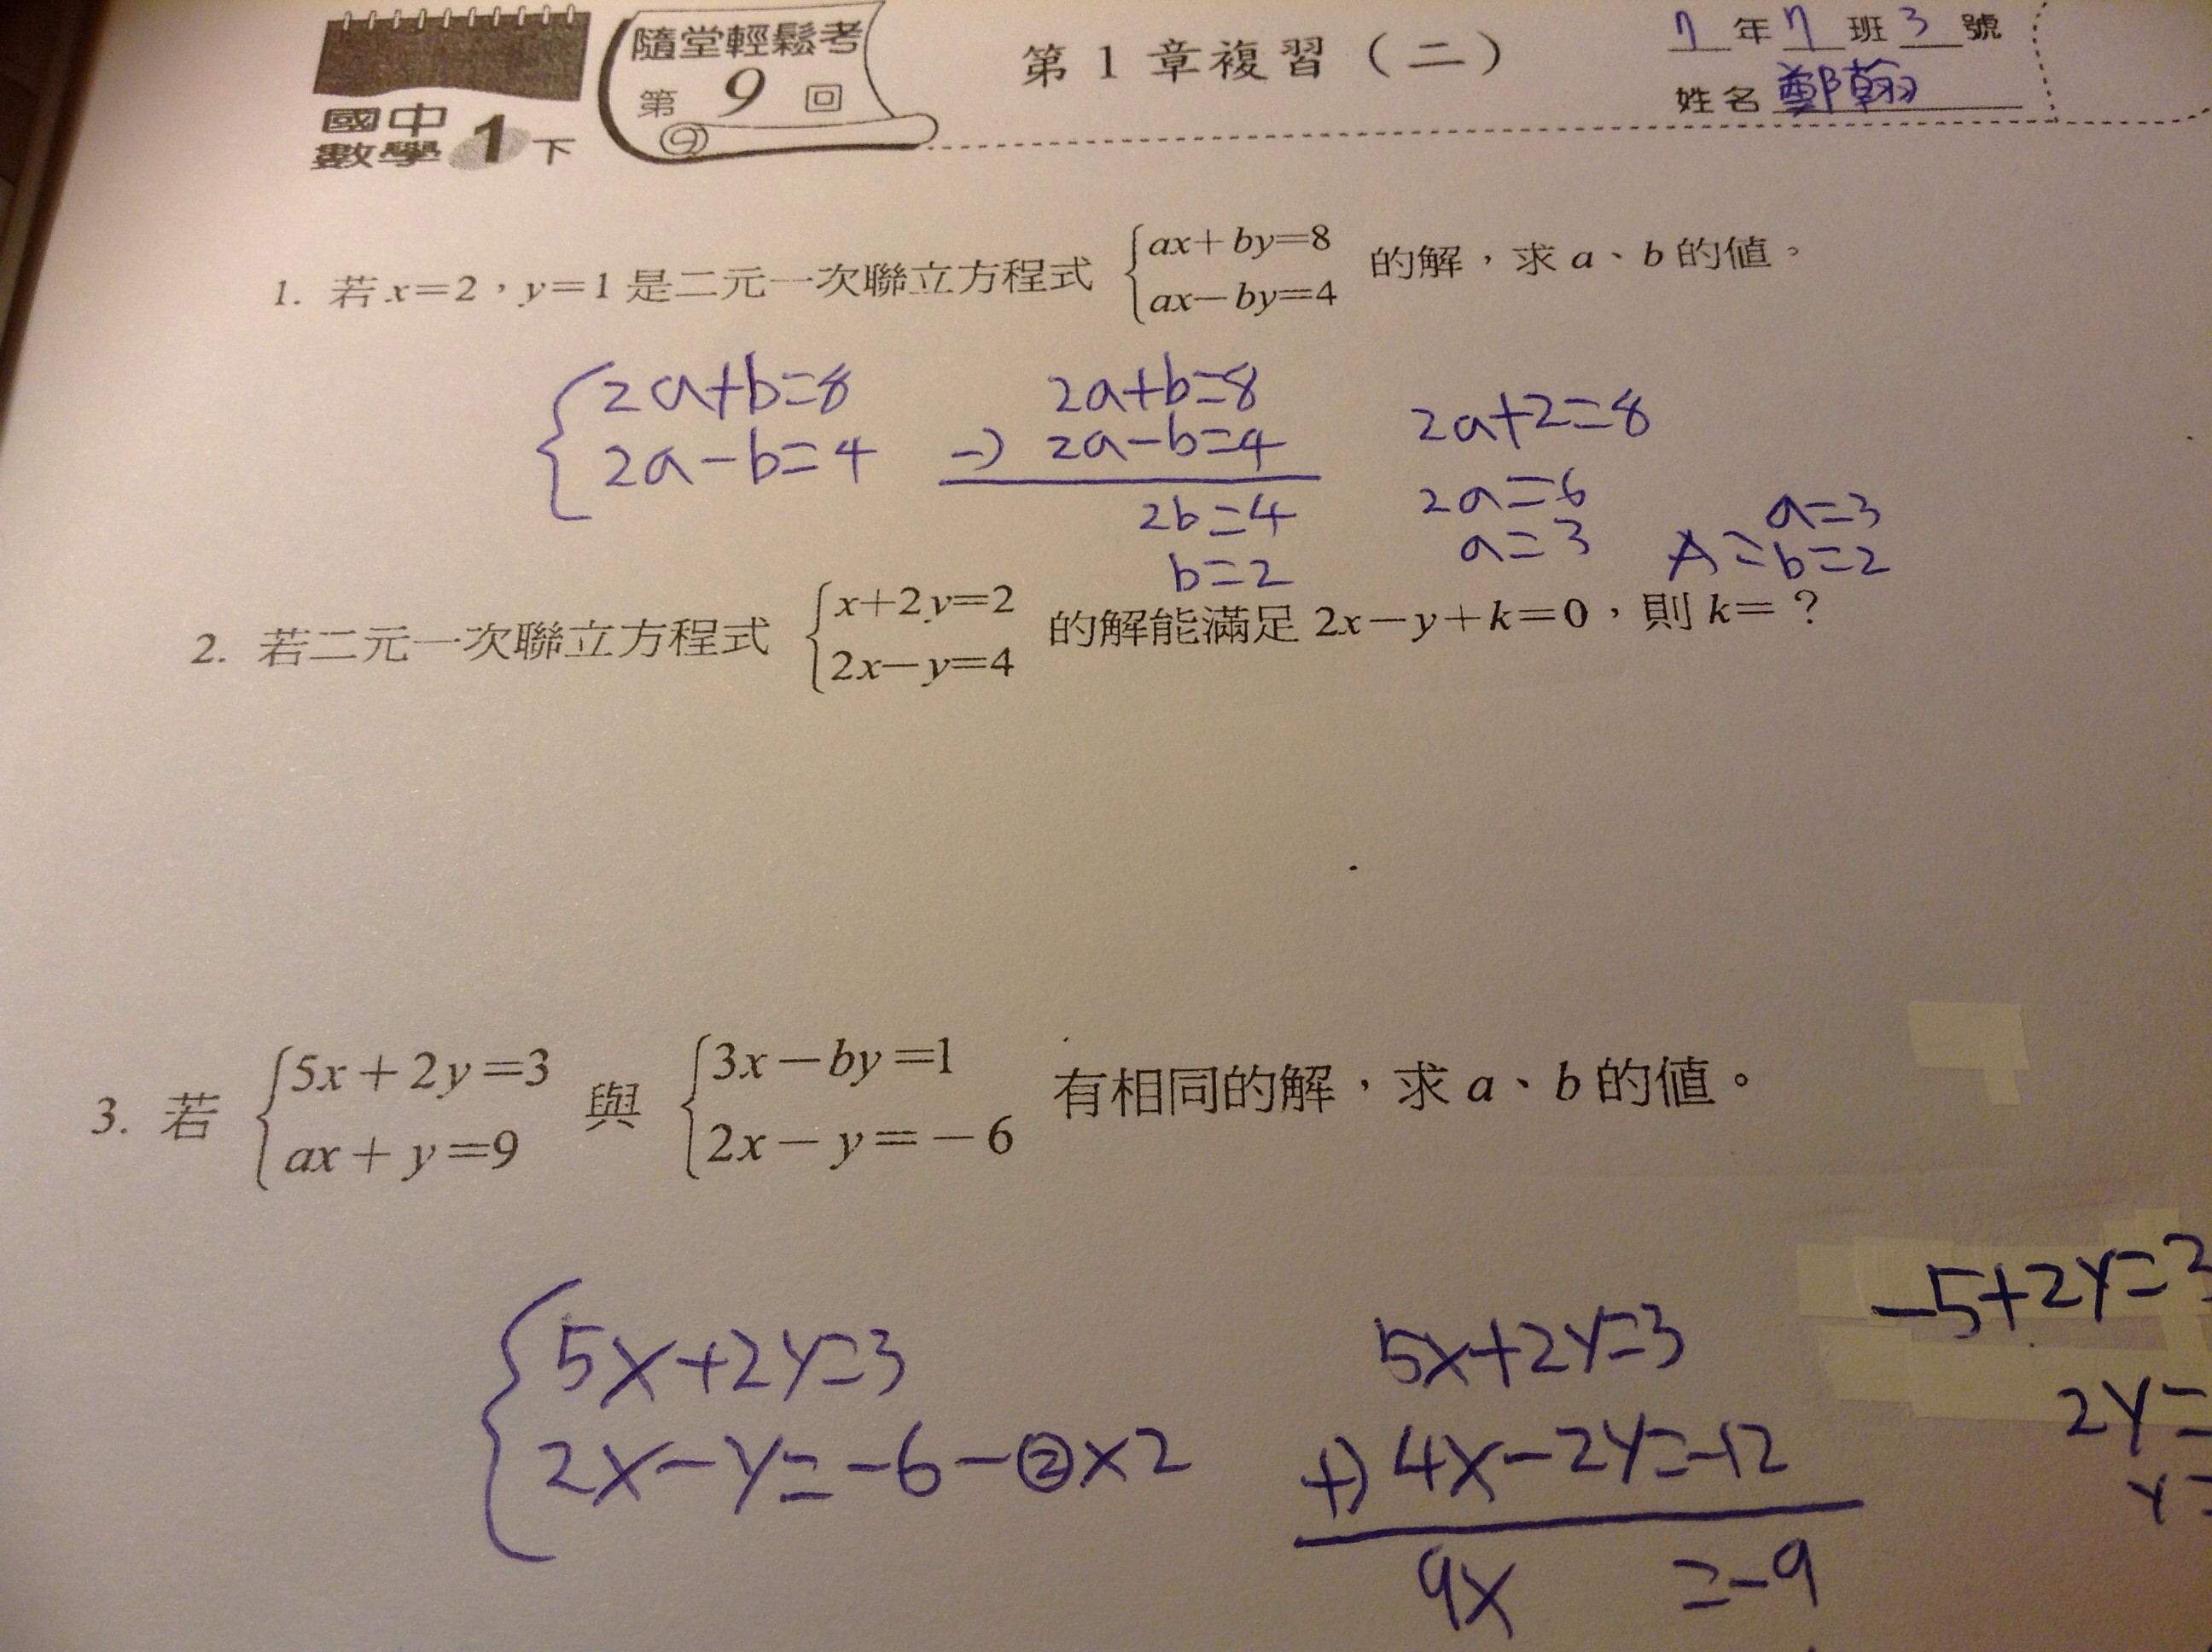 國中數學 1 下
隨堂輕鬆考
第 9 回
第 1 章複習（二）
7 年 7 班 3 號
姓名 鄭翰
1. 若 x=2，y=1 是二元一次聯立方程式 { ax+by=8 的解，求 a、b 的值。
ax-by=4
{ 2a+b=8
2a-b=4
2a+b=8
-) 2a-b=4
2b=4
b=2
2a+2=8
2a=6
a=3
a=3
A= b=2
2. 若二元一次聯立方程式 { x+2y=2 的解能滿足 2x-y+k=0，則 k=？
2x-y=4
3. 若 { 5x+2y=3 與 { 3x-by=1 有相同的解，求 a、b 的值。
ax+y=9 2x-y=-6
{ 5x+2y=3
2x-y=-6-②×2
5x+2y=3
+) 4x-2y=-12
9x =-9
-5+2y=3
2y=
y=